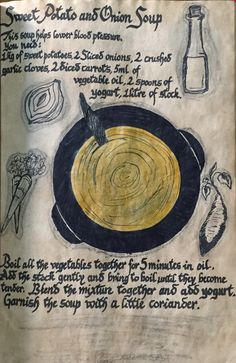 Sweet Potato and Onion Soup
This soup helps lower blood pressure.
You need:
1Kg of sweet potatoes, 2 Sliced onions, 2 crushed
garlic cloves, 2 diced carrots, 5ml of
vegetable oil, 2 spoons of
yogurt, 1 litre of stock.
Boil all the vegetables together for 5 minutes in oil.
Add the stock gently and bring to boil until they become
tender. Blend the mixture together and add yogurt.
Garnish the soup with a little coriander.